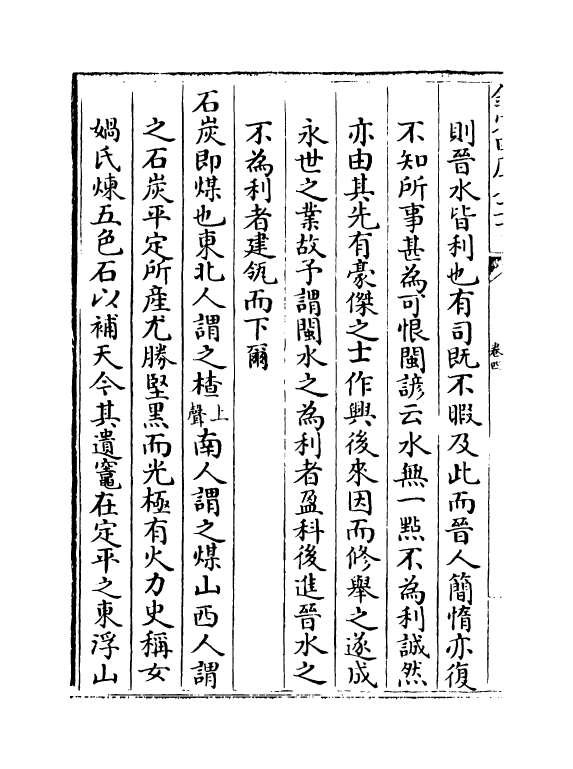 則晉水皆利也有司既不暇及此而晉人簡惰亦復
不知所事甚為可恨閩諺云水無一點不為利誠然
亦由其先有豪傑之士作興後來因而修舉之遂成
永世之業故予謂閩水之為利者盈科後進晉水之
不為利者建瓴而下爾
石炭即煤也東北人謂之楂上聲南人謂之煤山西人謂
之石炭平定所產尤勝堅黑而光極有火力史稱女
媧氏煉五色石以補天今其遺竈在定平之東浮山